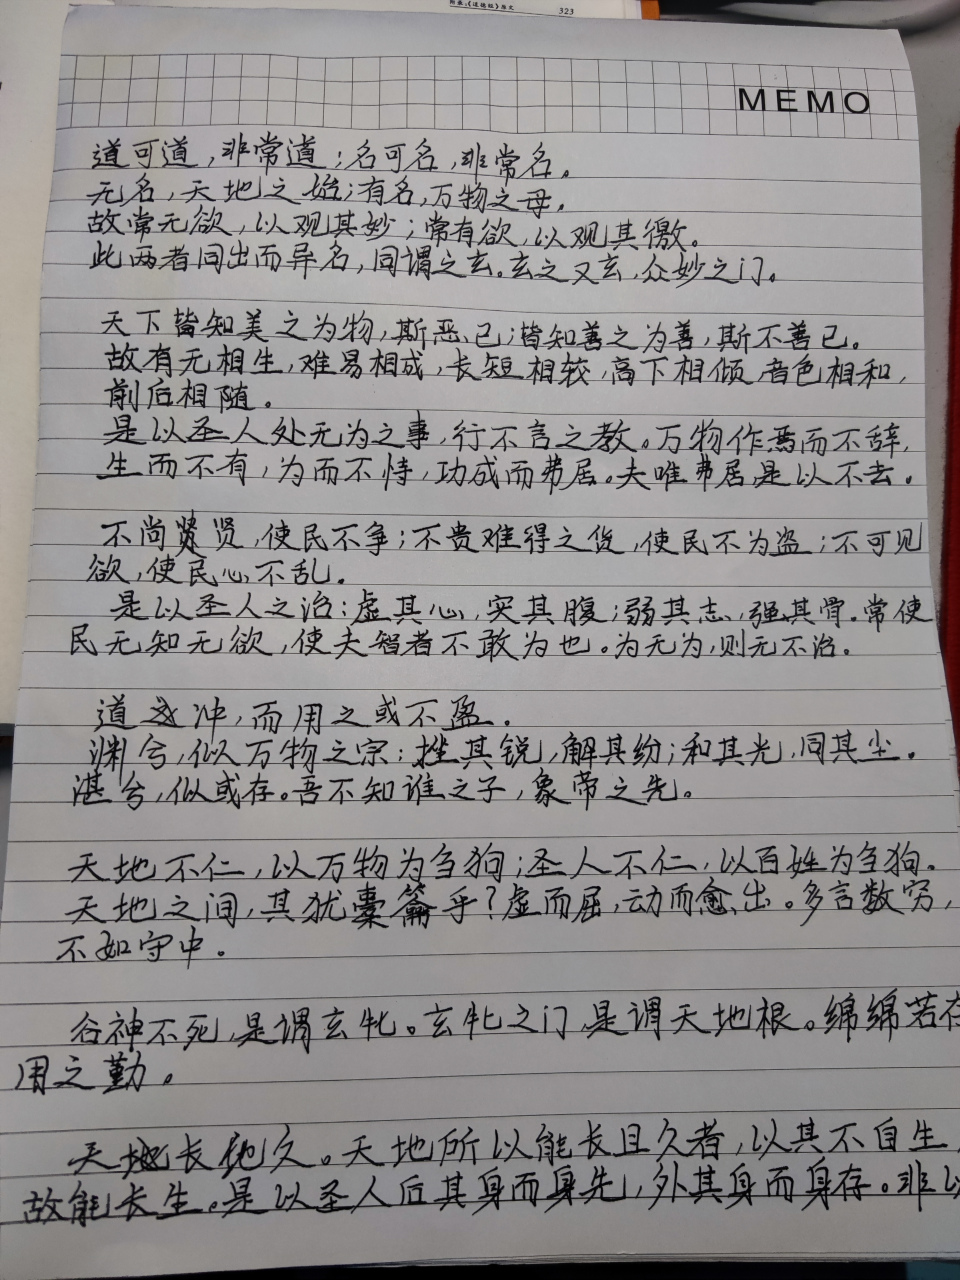 附录:《道德经》原文 323
MEMO
道可道,非常道;名可名,非常名。
无名,天地之始;有名,万物之母。
故常无欲,以观其妙;常有欲,以观其徼。
此两者同出而异名,同谓之玄。玄之又玄,众妙之门。
天下皆知美之为物,斯恶已;皆知善之为善,斯不善已。
故有无相生,难易相成,长短相较,高下相倾,音色相和,
前后相随。
是以圣人处无为之事,行不言之教。万物作焉而不辞,
生而不有,为而不恃,功成而弗居。夫唯弗居,是以不去。
不尚贤,使民不争;不贵难得之货,使民不为盗;不可见
欲,使民心不乱。
是以圣人之治:虚其心,实其腹;弱其志,强其骨。常使
民无知无欲,使夫智者不敢为也。为无为,则无不治。
道冲,而用之或不盈。
渊兮,似万物之宗;挫其锐,解其纷;和其光,同其尘。
湛兮,似或存。吾不知谁之子,象帝之先。
天地不仁,以万物为刍狗;圣人不仁,以百姓为刍狗。
天地之间,其犹橐籥乎?虚而屈,动而愈出。多言数穷,
不如守中。
谷神不死,是谓玄牝。玄牝之门,是谓天地根。绵绵若存
用之勤。
天地长地久。天地所以能长且久者,以其不自生,
故能长生。是以圣人后其身而身先,外其身而身存。非以